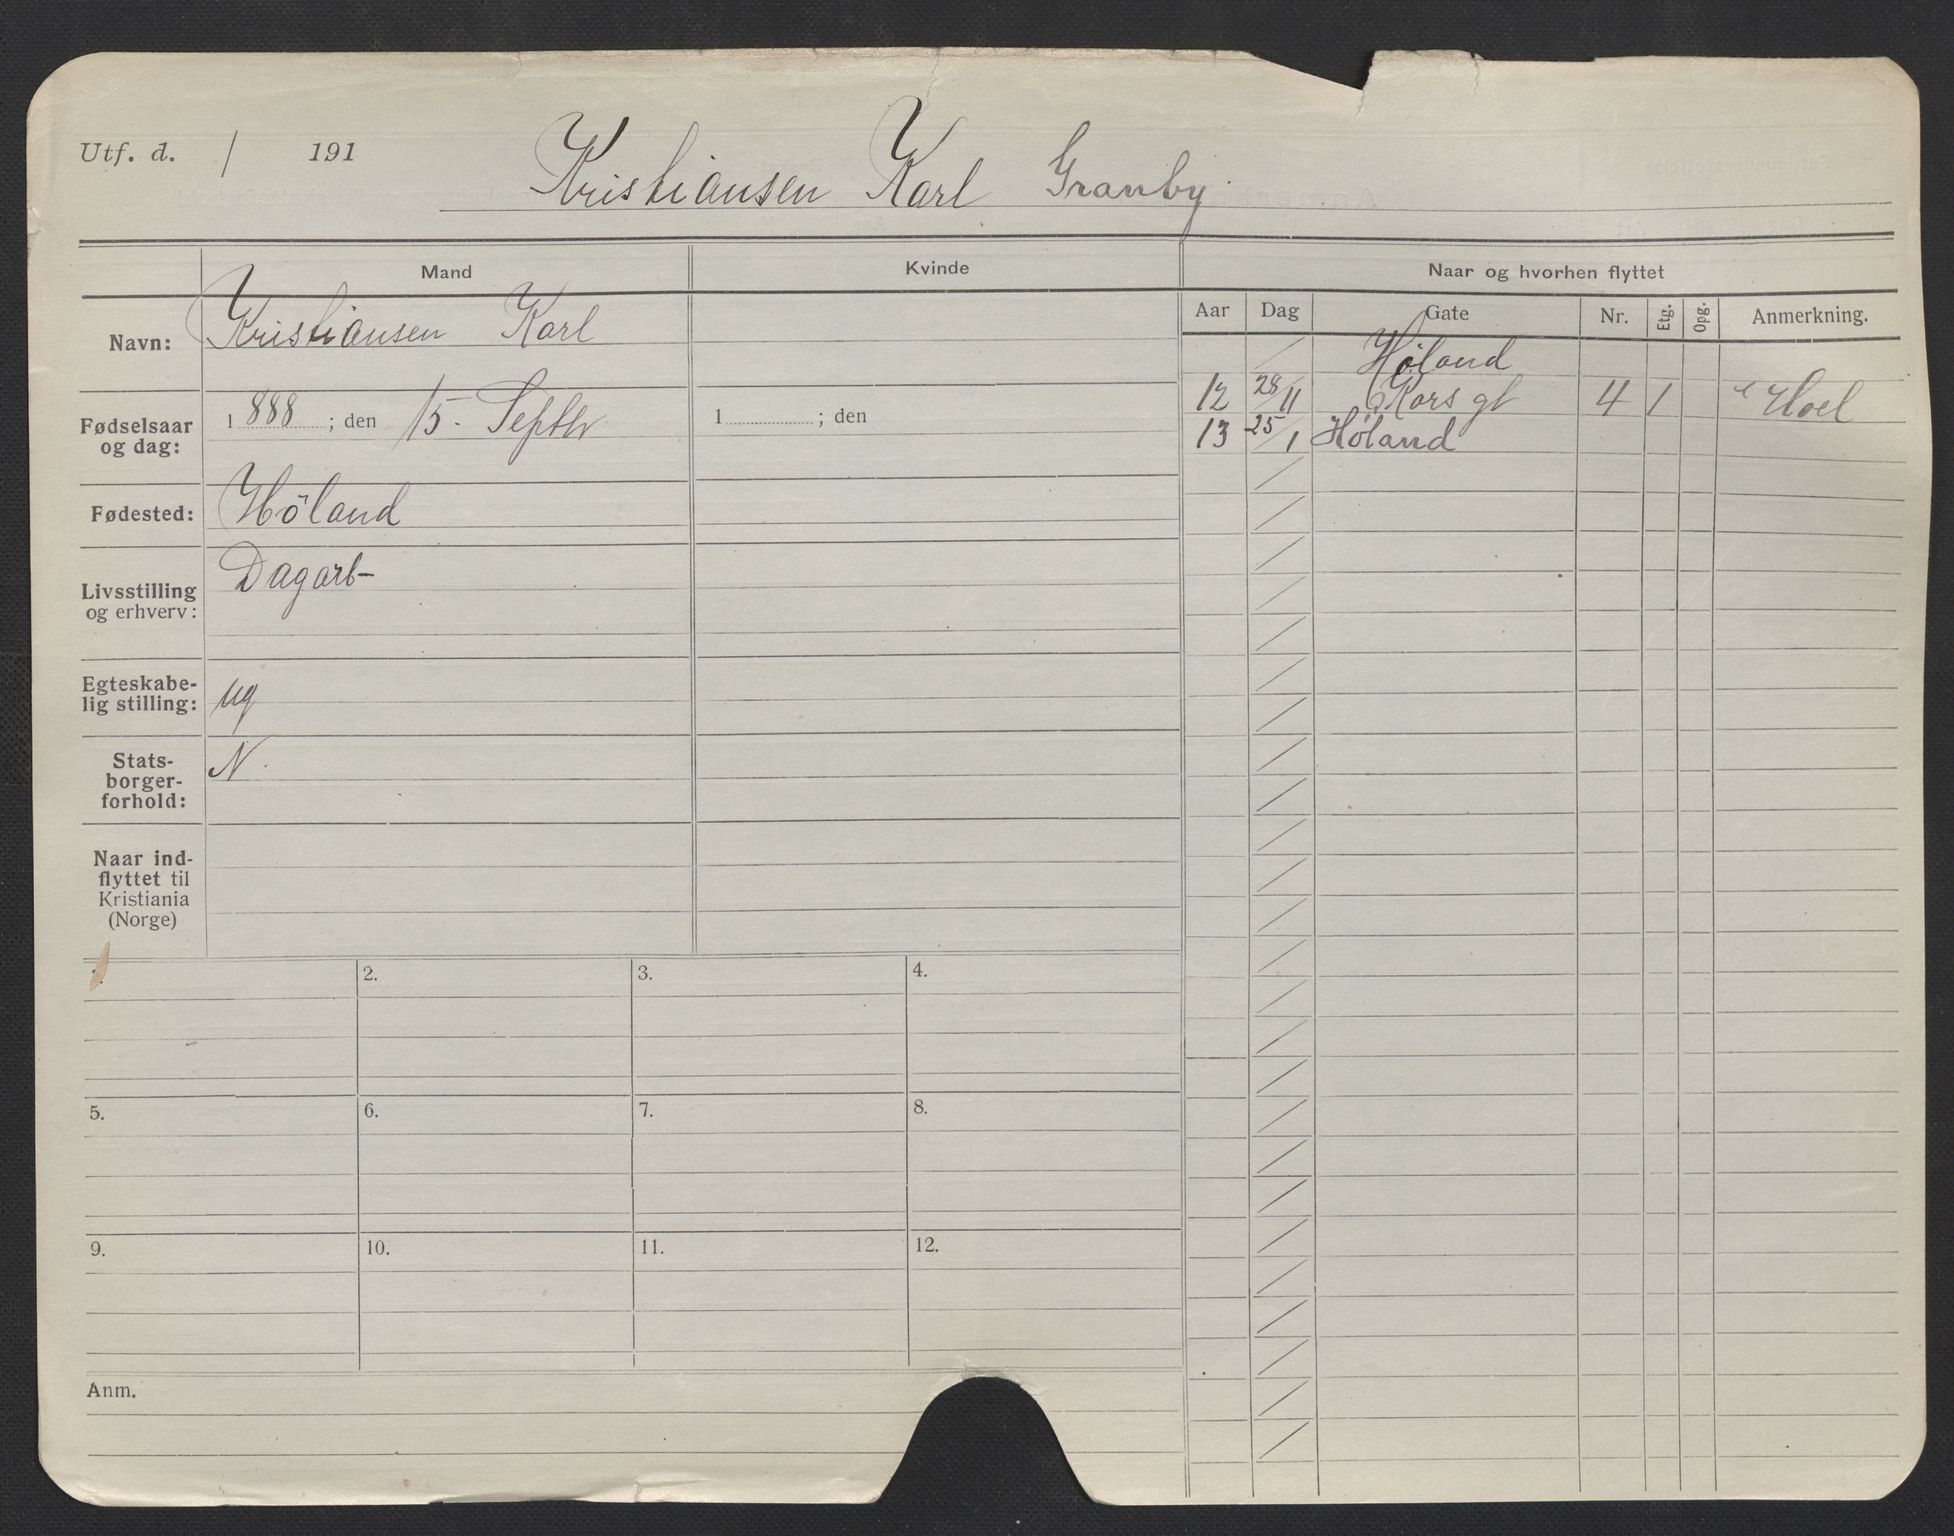 Utf. d. / 191
Kristiansen Karl Granby
Mand
Kvinde
Naar og hvorhen flyttet
Aar Dag Gate Nr. Etg. Opg. Anmerkning.
Navn: Kristiansen Karl
Fødselsaar og dag: 1888; den 15. Septbr
1 ; den
Fødested: Höland
Livsstilling og erhverv: Dagarb-
Egteskabe-
lig stilling: ug
Stats-
borger-
forhold: N.
Naar ind-
flyttet til
Kristiania
(Norge)
/ Høland
12 28/11 Kors gt 4 1 Hoel
13 25/1 Høland
1. 2. 3. 4.
5. 6. 7. 8.
9. 10. 11. 12.
Anm.